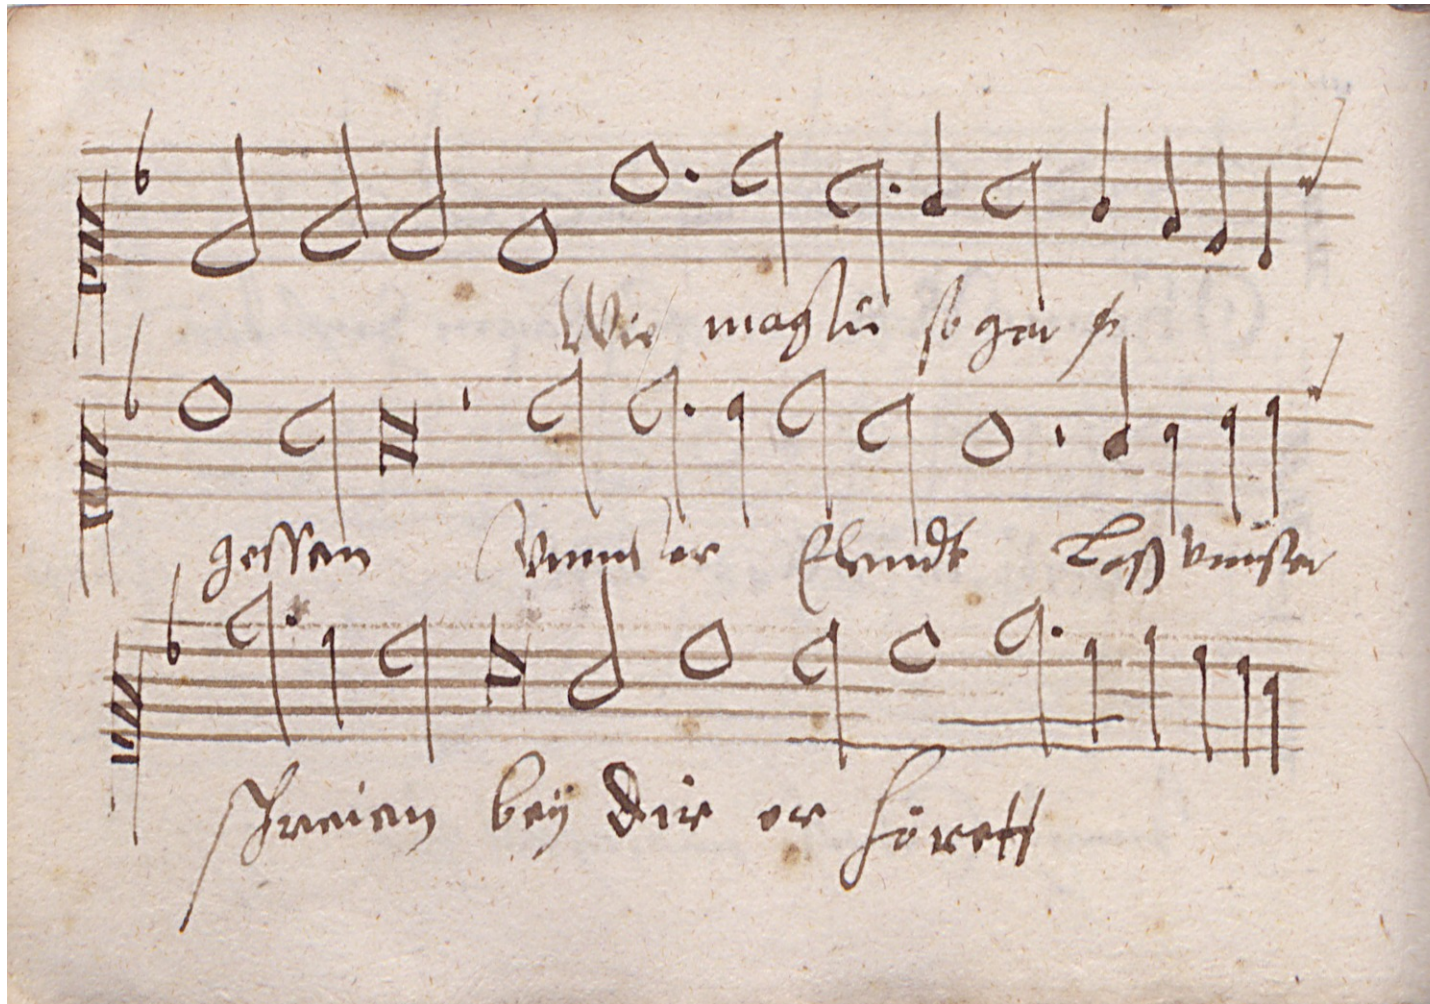 Wie magstu so gar v̈
gessen Vnnser Elendt Lass vnnser
schreien bey dir er hörett